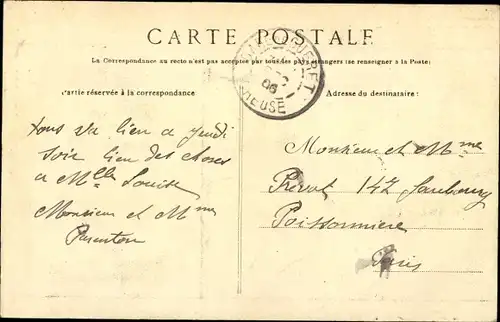 CARTE POSTALE
La Correspondance au recto n'est pas acceptée par tous les pays étrangers (se renseigner à la Poste)
GUERET
06
Partie réservée à la correspondance
Adresse du destinataire :
tous va bien a jeudi
soir bien des choses
a Mlle Louise
Monsieur et Mme
Parenton
Monsieur et Mme
Prevot 142 faubourg
Poissonniere
Paris